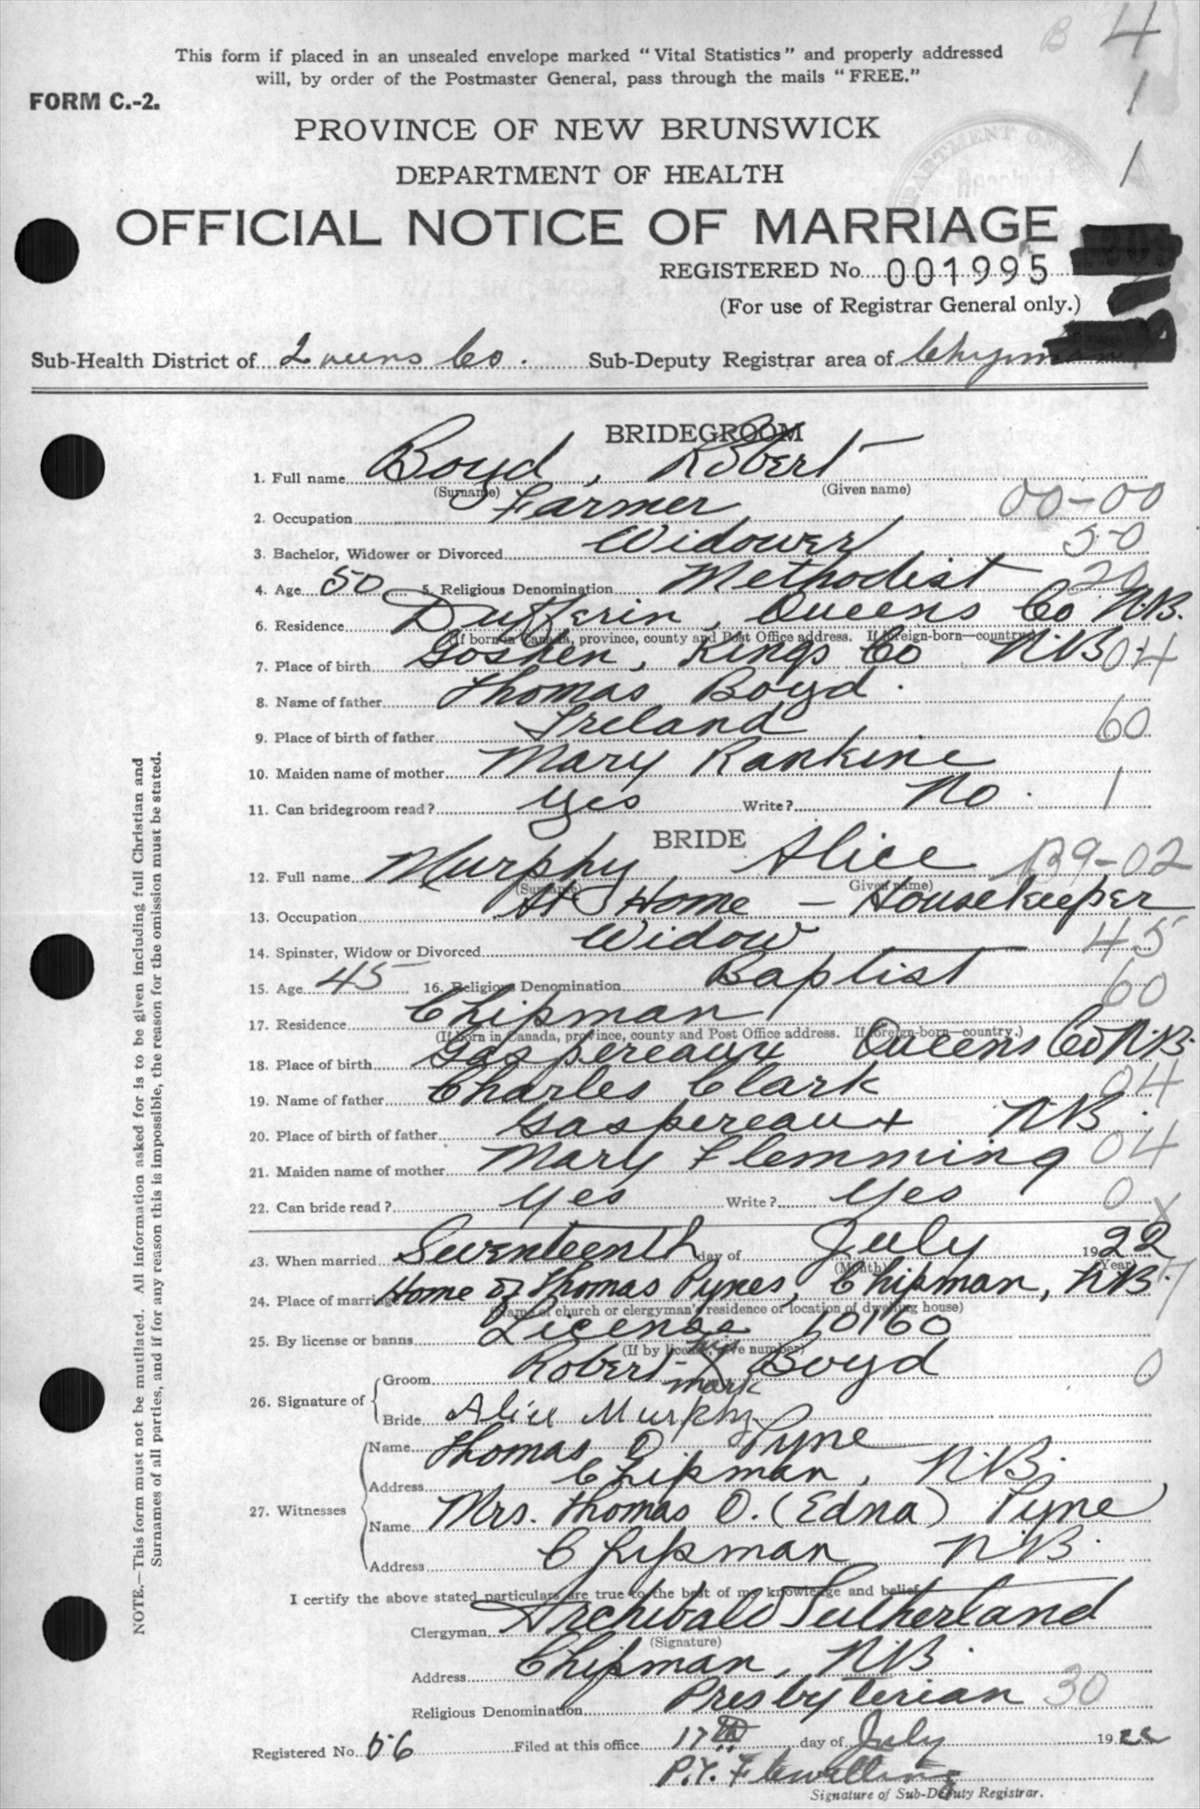 B 4
This form if placed in an unsealed envelope marked "Vital Statistics" and properly addressed
will, by order of the Postmaster General, pass through the mails "FREE."
FORM C.-2.
1
PROVINCE OF NEW BRUNSWICK
DEPARTMENT OF HEALTH
1
OFFICIAL NOTICE OF MARRIAGE
REGISTERED No. 001995
(For use of Registrar General only.)
Sub-Health District of Queens Co. Sub-Deputy Registrar area of Chipman
BRIDEGROOM
1. Full name Boyd, Robert
(Surname) (Given name)
2. Occupation Farmer 00-00
3. Bachelor, Widower or Divorced Widower 50
4. Age 50 5. Religious Denomination Methodist 20
6. Residence Dufferin, Queens Co N.B.
(If born in Canada, province, county and Post Office address. If foreign-born—country.)
7. Place of birth Goshen, Kings Co N.B. 04
8. Name of father Thomas Boyd.
9. Place of birth of father Ireland 60
10. Maiden name of mother Mary Rankine
11. Can bridegroom read? Yes Write? No. 1
BRIDE
12. Full name Murphy Alice B9-02
(Surname) Given name)
13. Occupation At Home - Housekeeper
14. Spinster, Widow or Divorced Widow 45
15. Age 45 16. Religious Denomination Baptist 60
17. Residence Chipman
(If born in Canada, province, county and Post Office address. If foreign-born—country.)
18. Place of birth Gaspereaux Queens Co N.B.
19. Name of father Charles Clark 04
20. Place of birth of father Gaspereaux N.B.
21. Maiden name of mother Mary Flemming 04
22. Can bride read? Yes Write? Yes 0
23. When married Seventeenth day of July 1922
(Month) (Year)
24. Place of marriage Home of Thomas Pynes, Chipman, N.B.
(Name of church or clergyman's residence or location of dwelling house)
25. By license or banns License 10160
(If by license, give number)
26. Signature of { Groom Robert X Boyd 0
mark
Bride Alice Murphy
27. Witnesses { Name Thomas O Pyne
Address Chipman, N.B.
Name Mrs. Thomas O. (Edna) Pyne
Address Chipman N.B.
I certify the above stated particulars are true to the best of my knowledge and belief.
Clergyman Archibald Sutherland
(Signature)
Address Chipman, N.B.
Religious Denomination Presbyterian 30
Registered No. 56 Filed at this office 17th day of July 1922
P.Y. Flewelling
Signature of Sub-Deputy Registrar.
NOTE.—This form must not be mutilated. All information asked for is to be given including full Christian and
Surnames of all parties, and if for any reason this is impossible, the reason for the omission must be stated.